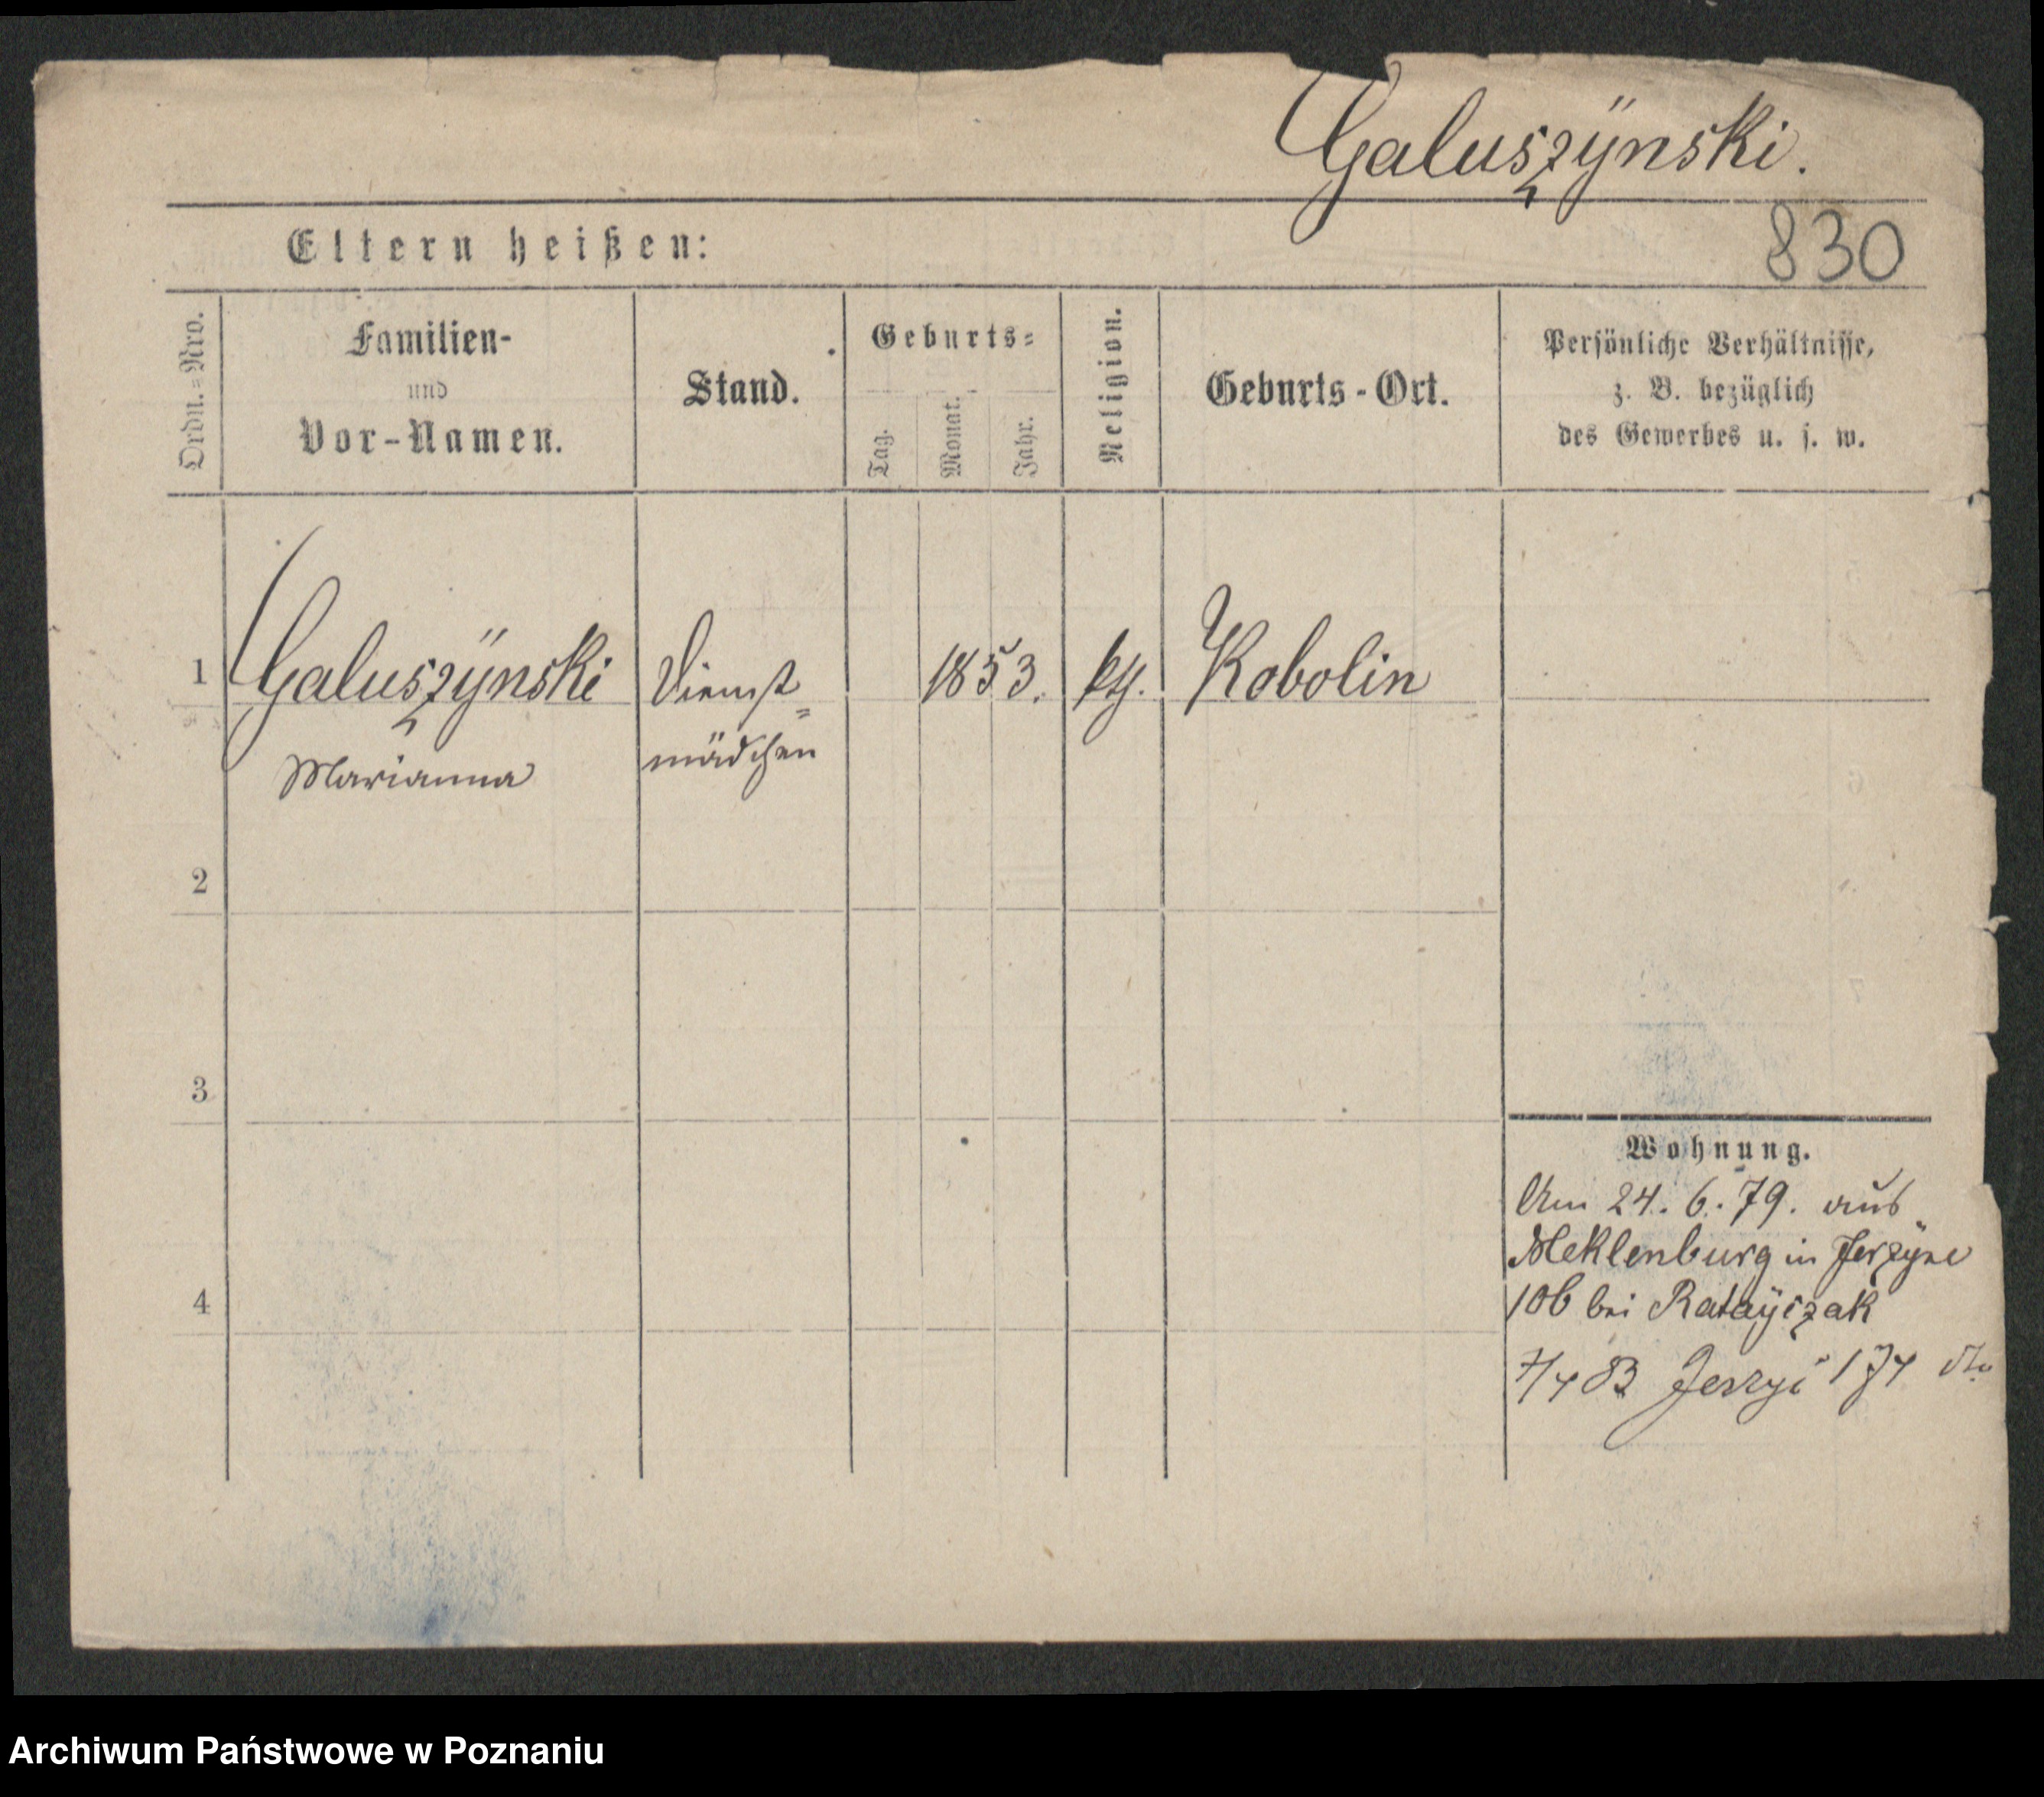 Galuszÿnski.
830
Eltern heißen:
Ordn.=Nro.
Familien-
und
Vor-Namen.
Stand.
Geburts=
Tag.
Monat.
Jahr.
Religion.
Geburts-Ort.
Persönliche Verhältnisse,
z. B. bezüglich
des Gewerbes u. s. w.
1 Galuszÿnski Dienst= 1853. kth. Kobolin
Marianna mädchen
2
3
4
Wohnung.
Am 24. 6. 79. aus
Meklenburg in Jerzÿce
106 bei Rataÿczak
83 Jerzyi 174 dto
Archiwum Państwowe w Poznaniu